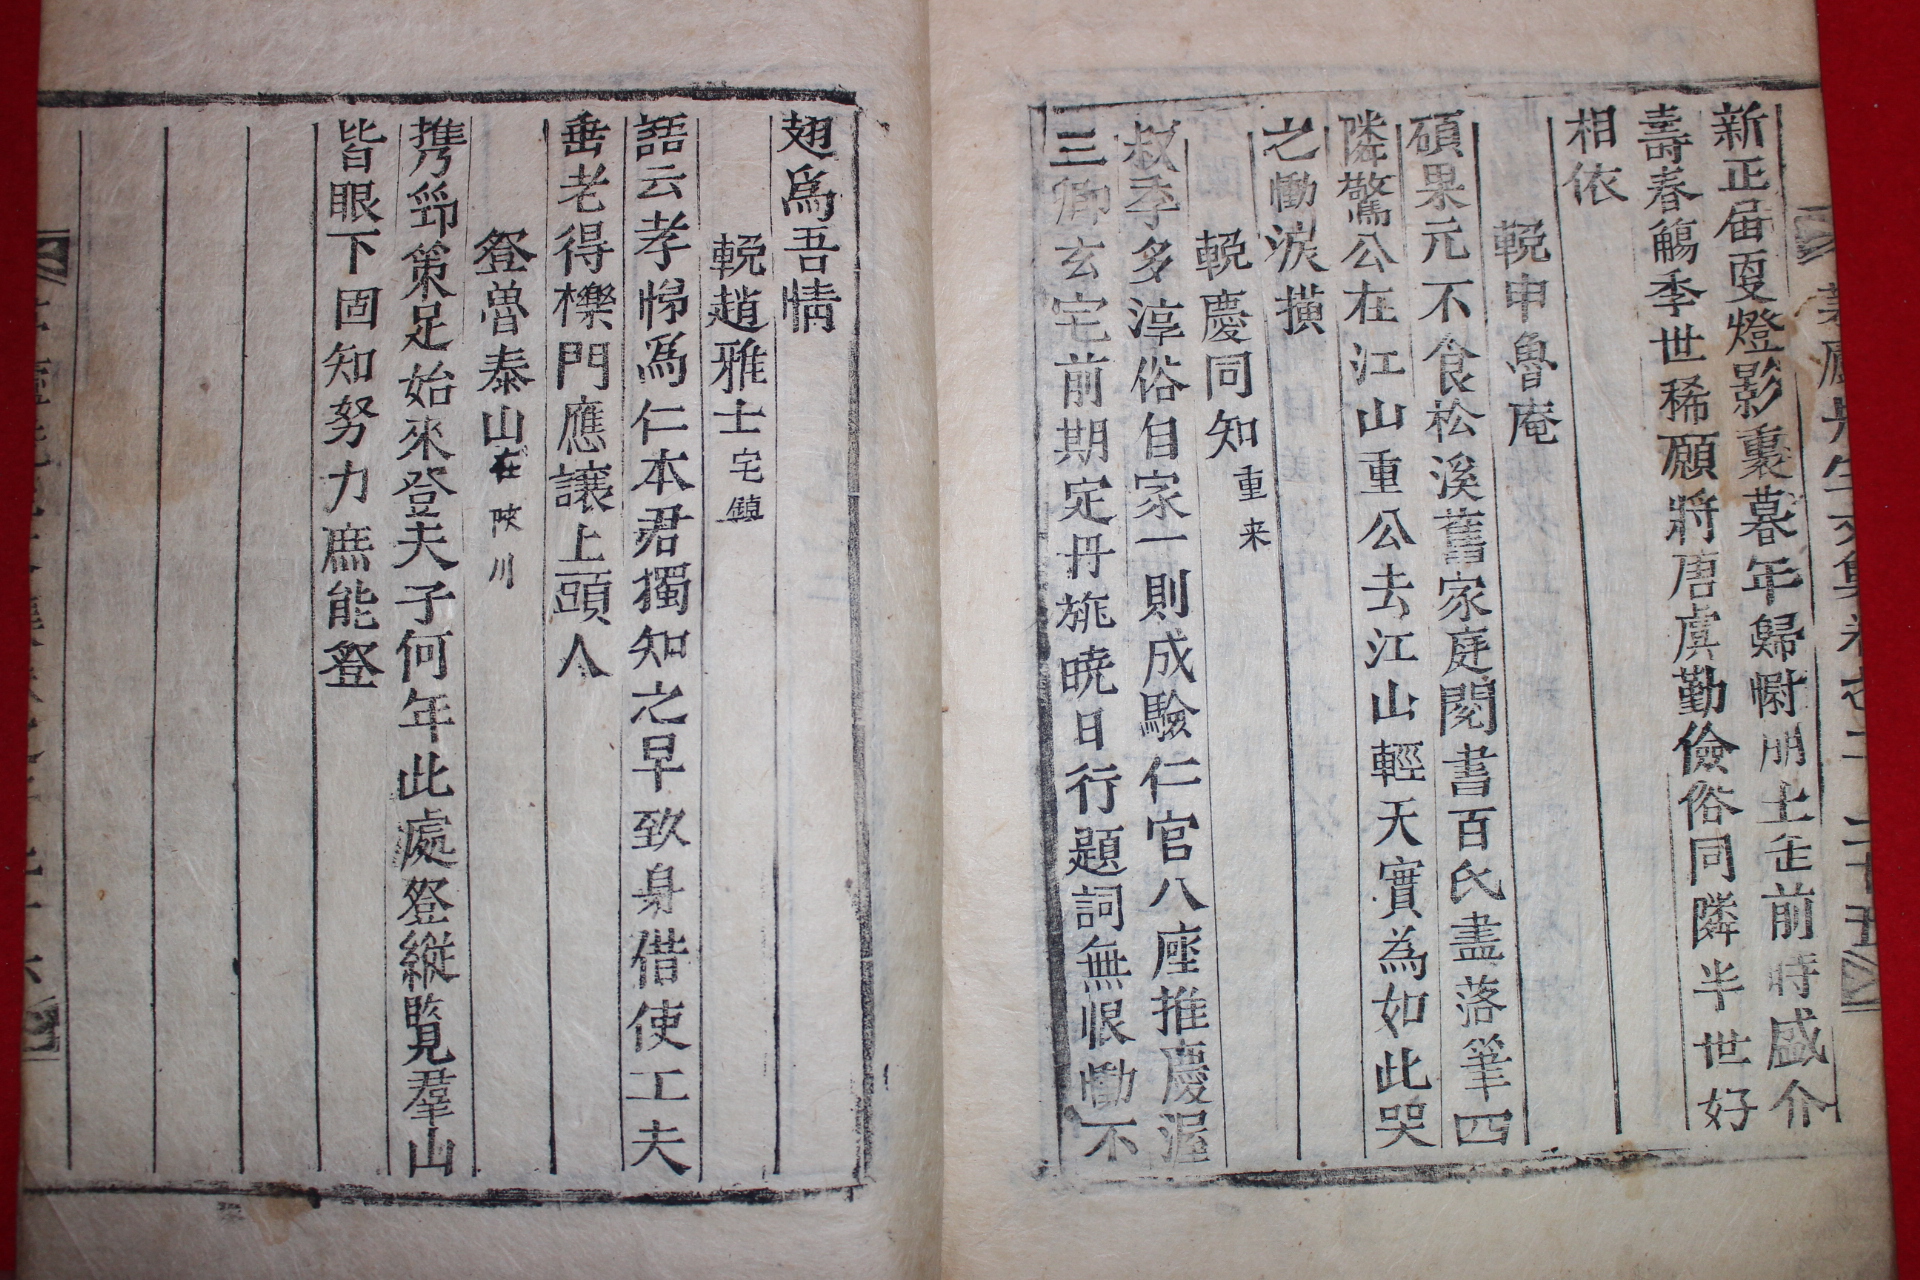 新正届亱燈影裏暮年歸慰朋士走前時盛介
壽春觴季世稀願將唐虞勤儉俗同隣半世好
相依
輓申魯庵
碩果元不食松溪舊家庭閱書百氏盡落筆四
隣驚公在江山重公去江山輕天實為如此哭
之慟淚橫
輓慶同知重来
叔季多淳俗自家一則成驗仁官八座推慶渥
三卿玄宅前期定丹旐曉日行題詞無恨慟不
翅爲吾情
輓趙雅士宅鎭
語云孝悌爲仁本君獨知之早致身借使工夫
垂老得櫟門應讓上頭人
登曾泰山在陜川
携筇策足始來登夫子何年此處登縱覧羣山
皆眼下固知努力庶能登